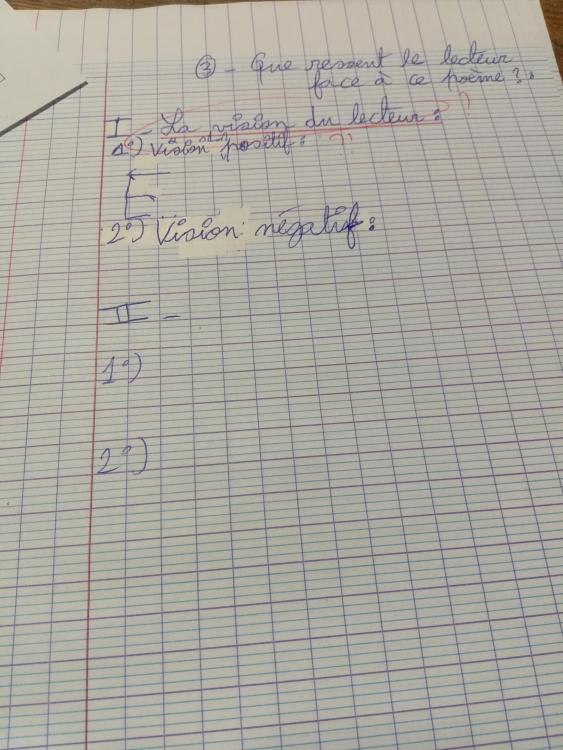 ③ - Que ressent le lecteur
face à ce poème ?
I - La vision du lecteur : ?
1°) Vision positif : ?
2°) Vision négatif :
II -
1°)
2°)